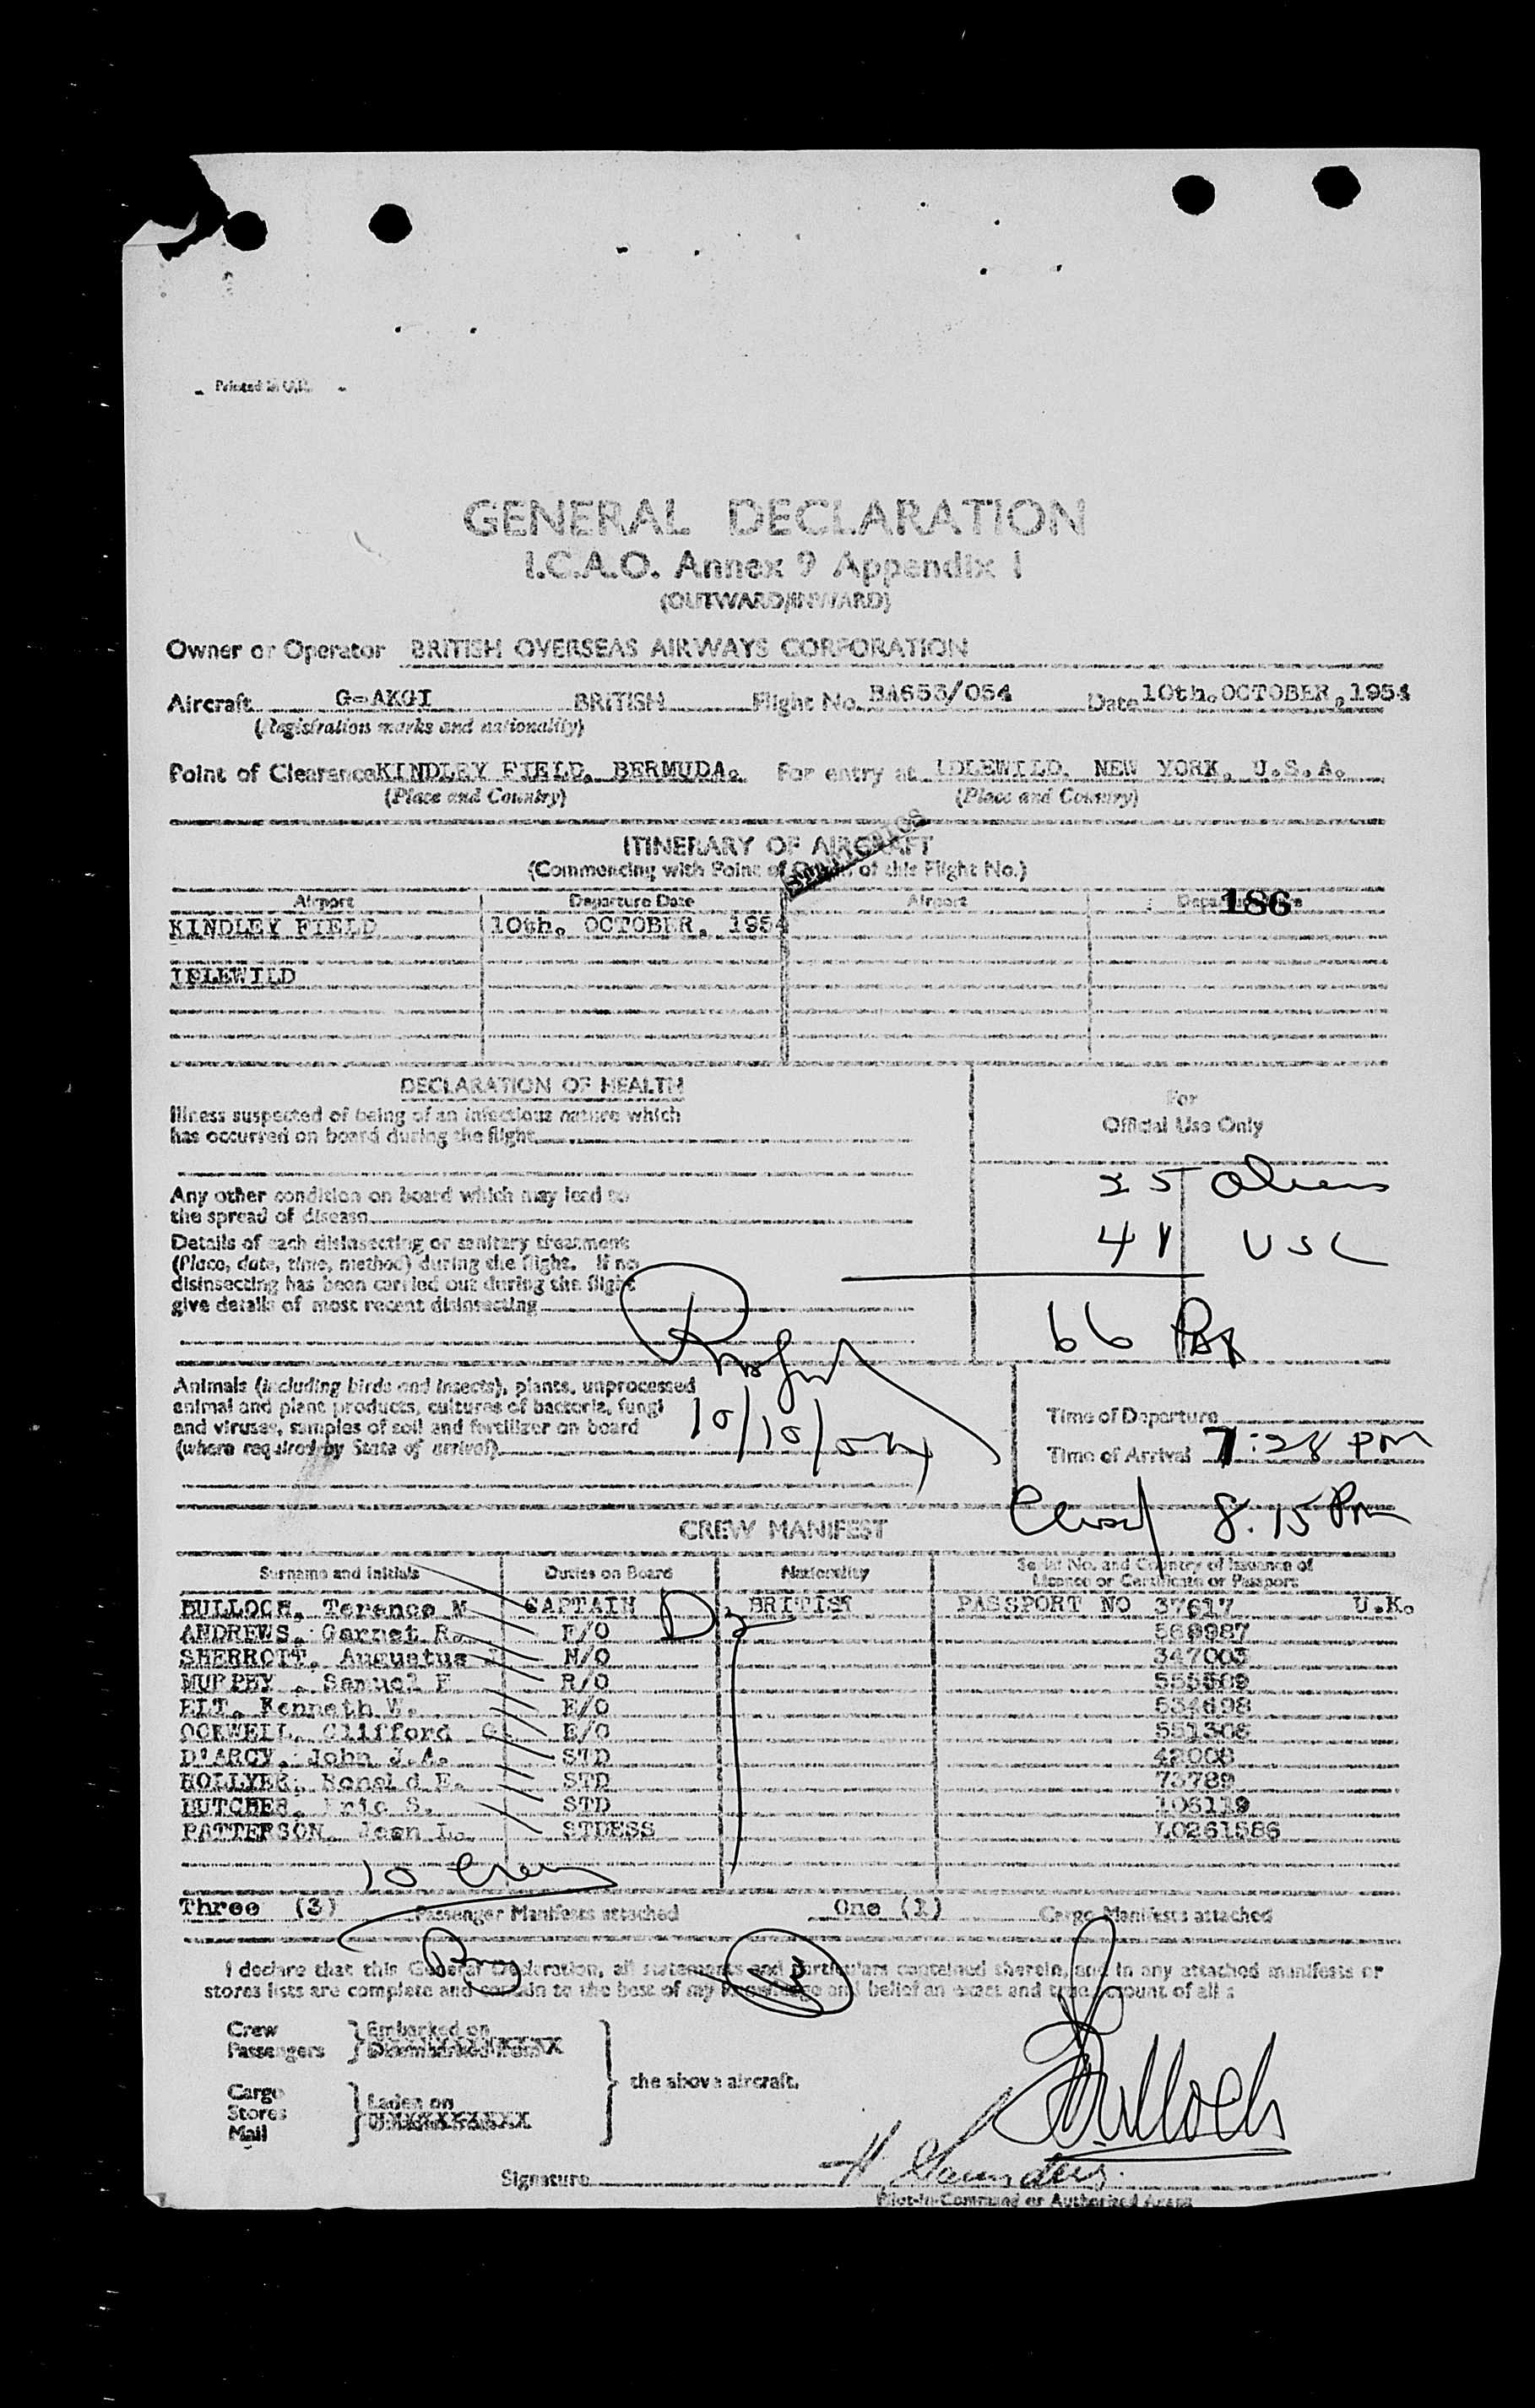 Printed in U.K.
GENERAL DECLARATION
I.C.A.O. Annex 9 Appendix 1
(OUTWARD/INWARD)
Owner or Operator BRITISH OVERSEAS AIRWAYS CORPORATION
Aircraft G-AKGI BRITISH Flight No. BA653/054 Date 10th. OCTOBER, 1954
(Registration marks and nationality)
Point of Clearance KINDLEY FIELD. BERMUDA. For entry at IDLEWILD. NEW YORK. U.S.A.
(Place and Country) (Place and Country)
ITINERARY OF AIRCRAFT
(Commencing with Point of Origin of this Flight No.)
Airport Departure Date Airport Departure Date
186
KINDLEY FIELD 10th. OCTOBER, 1954
IDLEWILD
DECLARATION OF HEALTH
For
Official Use Only
Illness suspected of being of an infectious nature which
has occurred on board during the flight
25 Aliens
Any other condition on board which may lead to
the spread of disease
41 USC
Details of each disinsecting or sanitary treatment
(Place, date, time, method) during the flight. If no
disinsecting has been carried out during the flight
give details of most recent disinsecting
66 Pax
Animals (including birds and insects), plants, unprocessed
animal and plant products, cultures of bacteria, fungi
and viruses, samples of soil and fertilizer on board
(where required by State of arrival)
10/10/54
Time of Departure
Time of Arrival 7:28 PM
Closed 8:15 PM
CREW MANIFEST
Surname and Initials Duties on Board Nationality Serial No. and Country of Issuance of
Licence or Certificate or Passport
BULLOCH, Terence M CAPTAIN BRITISH PASSPORT NO 37617 U.K.
ANDREWS, Garnet R. F/O 569987
SHERROTT, Augustus N/O 347003
MURPHY, Samuel F R/O 555509
ELT, Kenneth W. E/O 534698
OCKWELL, Clifford G E/O 551306
D'ARCY, John J.A. STD 42008
HOLLYER, Ronald E. STD 73789
BUTCHER, Eric S. STD 106119
PATTERSON, Jean L. STDESS L0261586
10 Crew
Three (3) Passenger Manifests attached One (1) Cargo Manifests attached
I declare that this General Declaration, all statements and particulars contained therein, and in any attached manifests or
stores lists are complete and contain to the best of my knowledge and belief an exact and true account of all :
Crew
Passengers
Embarked on
Cargo
Stores
Mail
Laden on
the above aircraft.
Bulloch
Signature H. Saunders.
Pilot-in-Command or Authorised Agent